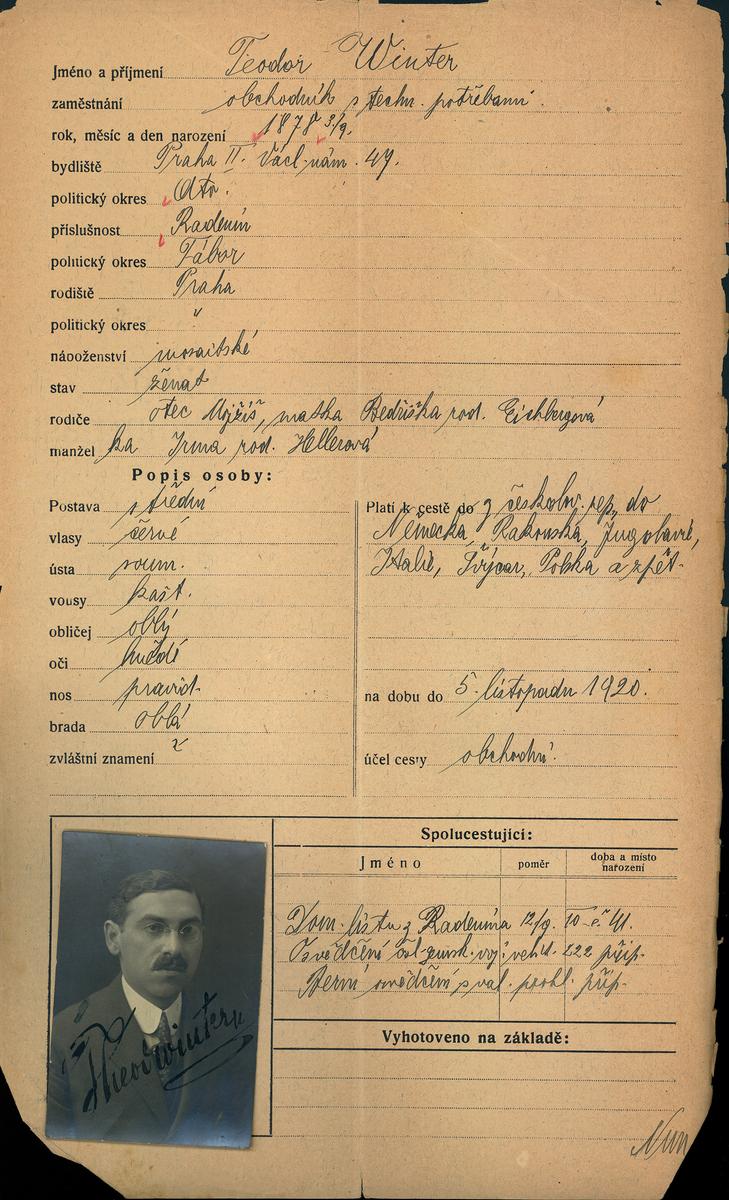 Jméno a příjmení Teodor Winter
zaměstnání obchodník s techn. potřebami.
rok, měsíc a den narození 1878 3/9.
bydliště Praha II. Václ. nám. 47.
politický okres dto.
příslušnost Radenín
politický okres Tábor
rodiště Praha
politický okres "
náboženství mosaitské
stav ženat
rodiče otec Mojžíš, matka Bedřiška rod. Eichbergová
manžel ka Irma rod. Hellerová
Popis osoby:
Postava střední
vlasy černé
ústa soum.
vousy kašt.
obličej oblý
oči hnědé
nos pravid.
brada oblá
zvláštní znamení
Platí k cestě do z českoslov. rep. do
Německa, Rakouska, Jugoslavie,
Italie, Švýcar, Polska a zpět.
na dobu do 5. listopadu 1920.
účel cesty obchodní.
Spolucestující:
Jméno poměr doba a místo narození
Dom. listu z Radenína 12/9. 10 č. 41.
Osvědčení vojensk. 222 přip.
Berní osvědčení přip.
Vyhotoveno na základě:
Theod Winter